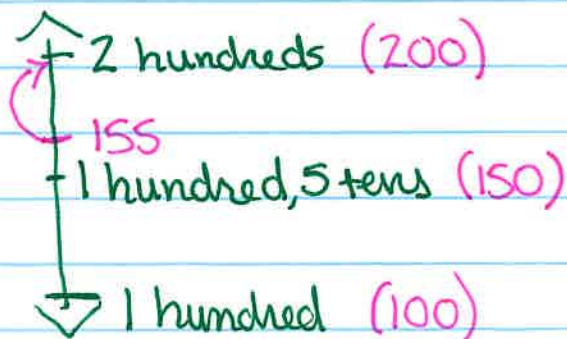 2 hundreds (200)
155
1 hundred, 5 tens (150)
1 hundred (100)